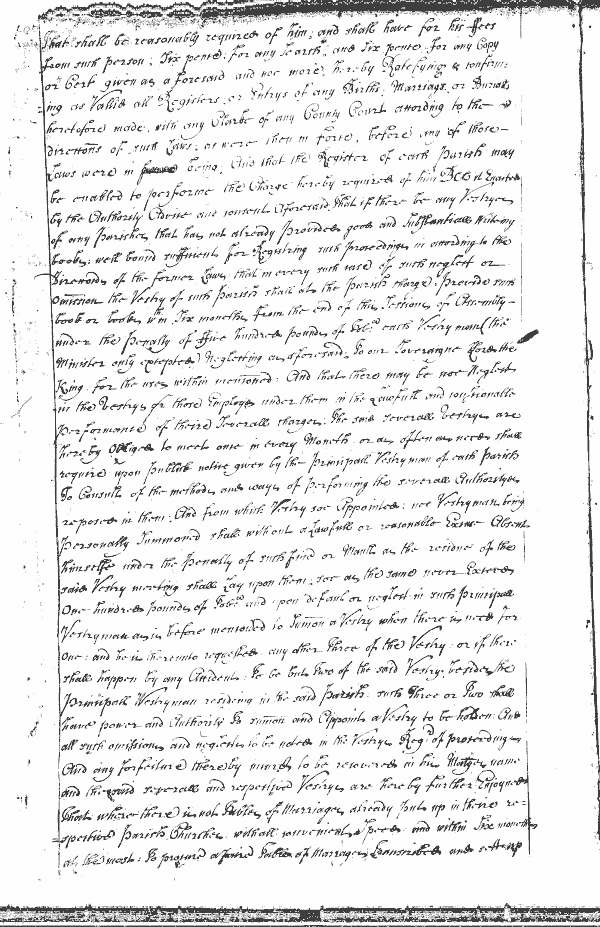 that shall be reasonably required of him; and shall have for his ffees
from such person; Six pence for any Search, and Six pence for any Copy
or Cert given as aforesaid and noe more, hereby Ratefying & confirm-
ing as Vallid all Registers, or Entrys of any Births, Marriages, or Burialls
heretofore made, with any Clarke of any County Court according to the
directions of such Laws, as were then in force, before any of those
Laws were in being. And that the Register of each Parish may
be enabled to performe the Charge hereby required of him Bee it Enacted
by the Authority Advise and consent aforesaid, that if there be any Vestryes
of any Parishes that has not already Provided good and Substantiall Writeing
books; well bound sufficient for Registring such Proceedings in according to the
Direcions of the former Law; that in every such case of such neglect or
Omission the Vestry of such Parish shall at the Parish charge; Provide such
book or books wth in Six moneths from the end of this Sessions of Assembly
under the penalty of ffive hundred pounds of Tobo each Vestry man (the
Minister only excepted) Neglecting as aforesaid; To our Soveraigne the
King; for the uses within mentioned: And that there may be noe Neglect
in the Vestrys or those Employed under them in the Lawfull and reasonable
performance of theire Severall charges; The said severall Vestrys are
hereby Obliged to meet once in every Moneth or as often as need shall
require upon publick notice given by the Principall Vestryman of each Parish
To Consult of the methods and ways of performing the severall Authorityes
reposed in them; And from which Vestry soe Appointed; noe Vestryman being
Personally Summoned shall without a Lawfull or reasonable Excuse Absent
himselfe under the Penalty of such ffine or Mault as the residue of the
said Vestry meeting shall Lay upon them; soe as the same never Exceed
One hundred pounds of Tobo and upon default or neglect in such Principall
Vestryman as is before mentioned to Summon a Vestry when there is need for
one; and he is thereunto requested any other Three of the Vestry: or if there
shall happen by any Accident: To be but Two of the said Vestry besides the
Principall Vestryman residing in the said Parish; such Three or Two shall
have power and Authority To summon and Appoint a Vestry to be holden: And
all such omissions and neglects to be noted in the Vestrys Regr of proceedings
And any forfeiture thereby incurred to be recovered in his Matyes name
and the said severall and respective Vestrys are hereby further Enjoyned
that where there is not Tables of Marriages already put up in their re-
spective Parish Churches: with all convenient speed: and within Six moneths
at the most: To procure a faire Table of Marriages Transcribed and sett up